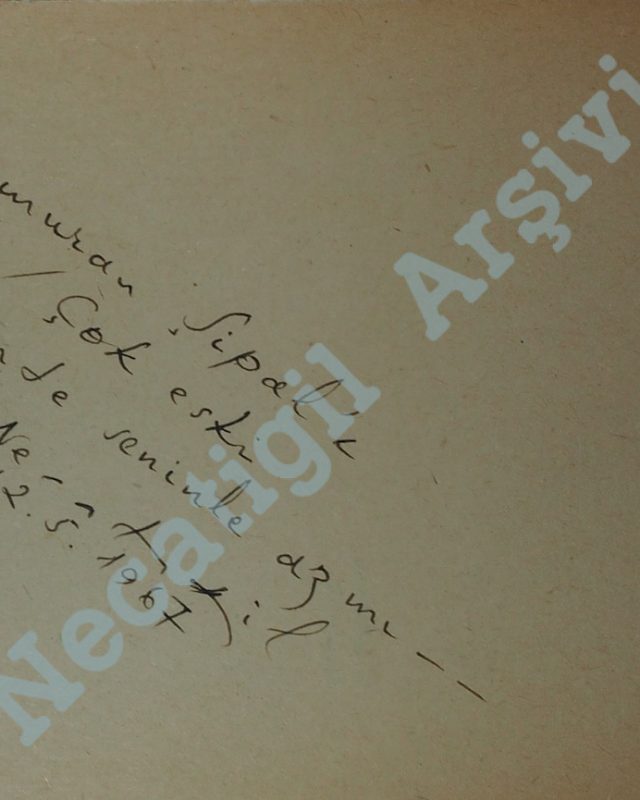 muran Şipal'ı
Çok eski
de seninle az mı --
Ne tigil
2.5.1967
Necatigil Arşivi